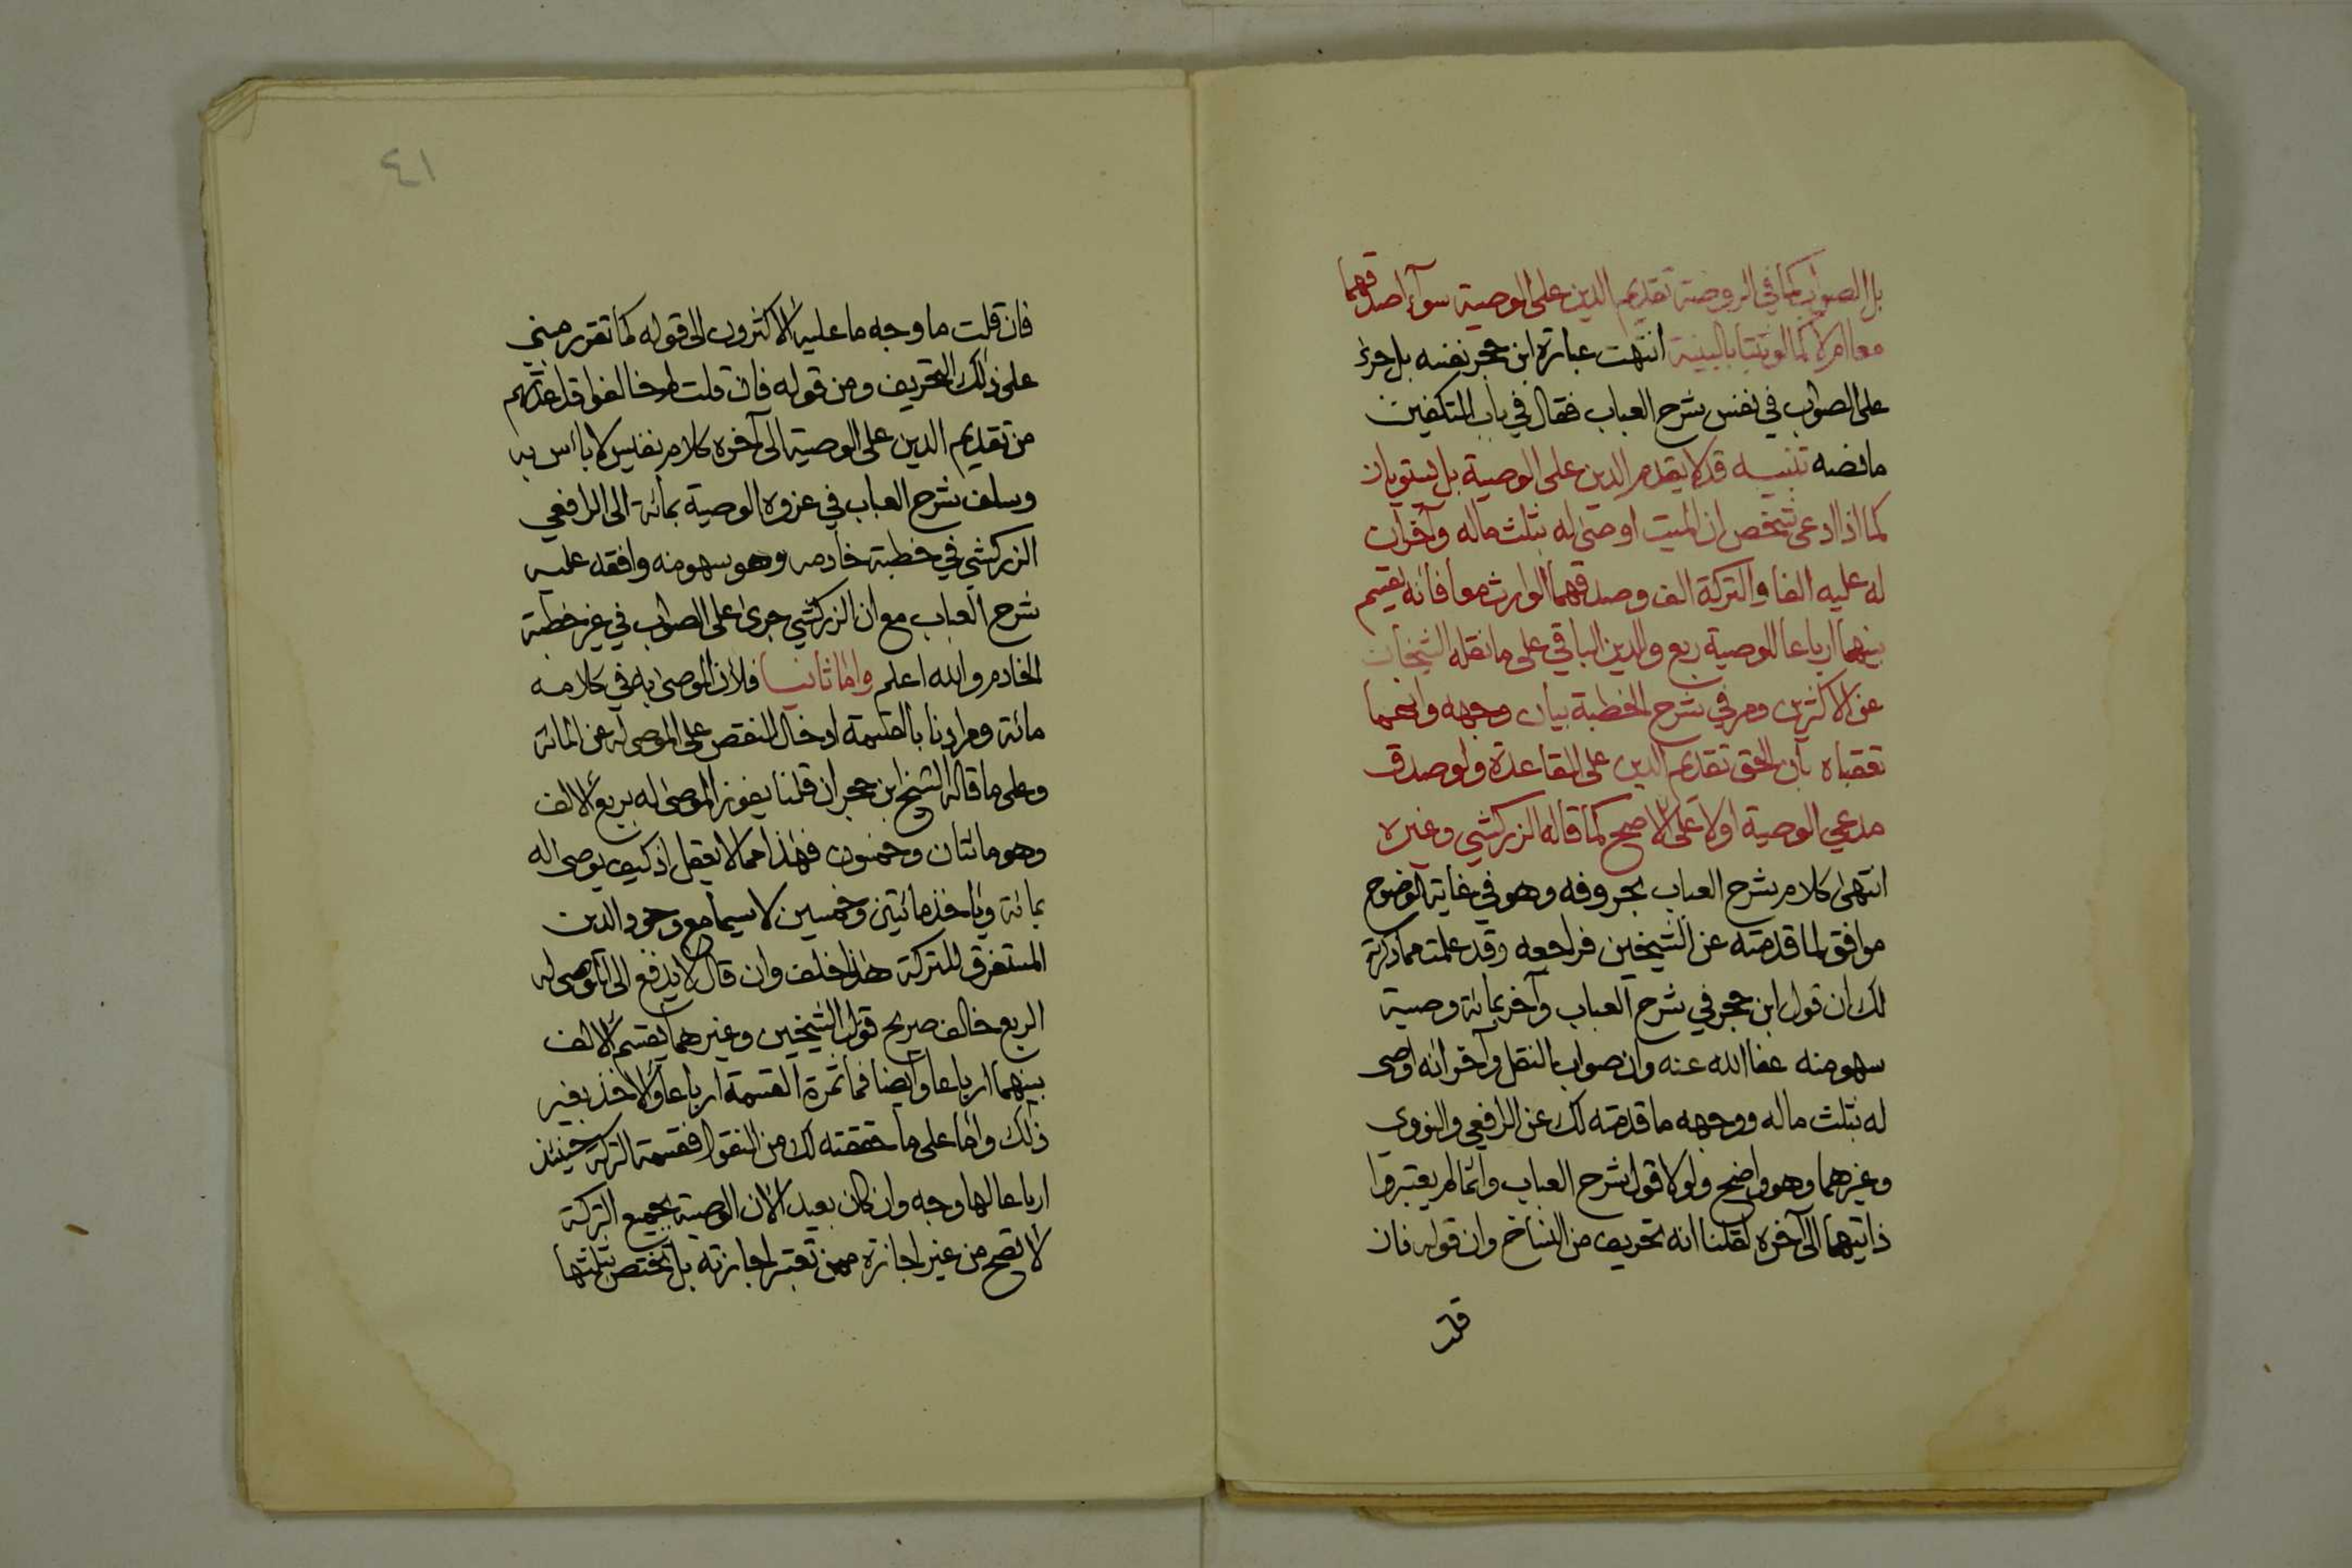 بل الصواب كما في الروضة تقديم الدين على الوصية سوآء اصدقهما
معا ام لا كما لو ثبتا بالبينة انتهت عبارة ابن حجر نفسه بل جرى
على الصواب في نفس شرح العباب فقال في باب التكفين
ما نصه تنبيه قد لا يقدم الدين على الوصية بل يستويان
كما اذا ادعى شخص ان الميت اوصى له بثلث ماله وآخر ان
له عليه الفا والتركة الف وصدقهما الوارث معا فانه يقسم
بينهما ارباعا للوصية ربع وللدين الباقي على ما نقله الشيخان
عن الاكثرين ومر في شرح الخطبة بيان وجهه وانهما
تعقباه بان الحق تقديم الدين على القاعدة ولو صدق
مدعي الوصية اولا على الاصح كما قاله الزركشي وغيره
انتهى كلام شرح العباب بحروفه وهو في غاية الوضوح
موافق لما قدمته عن الشيخين فراجعه وقد علمت مما ذكرته
لك ان قول ابن حجر في شرح العباب وآخر بمائة وصية
سهو منه عفا الله عنه وان صواب النقل وآخر انه اوصى
له بثلث ماله ووجهه ما قدمته لك عن الرافعي والنووي
وغيرهما وهو واضح ولولا قول شرح العباب وانما لم يعتبروا
ذاتيهما الى آخره لقلنا انه تحريف من النساخ وان قوله فان
قلت
٤١
فان قلت ما وجه ما عليه الاكثرون الى قوله كما تقرر مبني
على ذلك التحريف ومن قوله فان قلت لم خالفوا قاعدتهم
من تقديم الدين على الوصية الى آخره كلام نفيس لا باس به
وسلف شرح العباب في عزوه الوصية بمائة الى الرافعي
الزركشي في خطبة خادمه وهو سهو منه وافقه عليه
شرح العباب مع ان الزركشي جرى على الصواب في غير خطبة
الخادم والله اعلم واما ثانيا فلان الموصى به في كلامه
مائة ومرادنا بالقسمة ادخال النقص على الموصى له عن المائة
وعلى ما قاله الشيخ ابن حجر ان قلنا يفوز الموصى له بربع الالف
وهو مائتان وخمسون فهذا مما لا يعقل اذ كيف يوصى له
بمائة وياخذ مائتين وخمسين لا سيما مع وجود الدين
المستغرق للتركة هذا خلف وان قال لا يدفع الى الموصى له
الربع خالف صريح قول الشيخين وغيرهما يقسم الالف
بينهما ارباعا وايضا فما ثمرة القسمة ارباعا والاخذ بغير
ذلك واما على ما حققته لك من النقول فقسمة التركة حينئذ
ارباعا لها وجه وان كان بعيدا لان الوصية بجميع التركة
لا تصح من غير اجازة ممن تعتبر اجازته بل تختص بثلثها